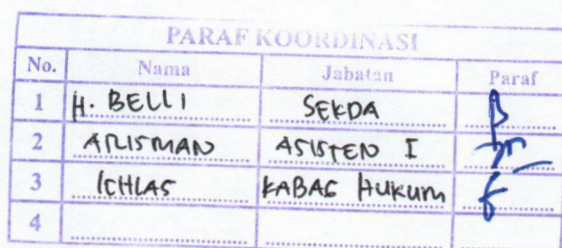 PARAF KOORDINASI
No. Nama Jabatan Paraf
1 H. BELLI SEKDA
2 ARISMAN ASISTEN I
3 ICHLAS KABAG HUKUM
4